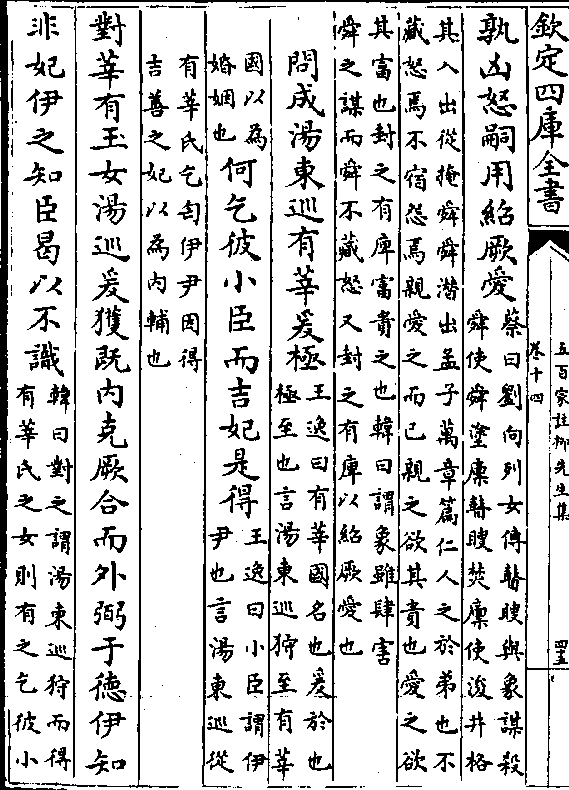 欽定四庫全書
五百家註柳先生集
卷十四
四五
孰凶怒嗣用紹厥愛
蔡曰劉向列女傳瞽瞍與象謀殺
舜使舜塗廩瞽瞍焚廩使浚井格
其入出從掩舜舜潛出孟子萬章篇仁人之於弟也不
藏怒焉不宿怨焉親愛之而已親之欲其貴也愛之欲
其富也封之有庳富貴之也韓曰謂象雖肆害
舜之謀而舜不藏怒又封之有庳以紹厥愛也
問成湯東巡有莘爰極
王逸曰有莘國名也爰於也
極至也言湯東巡狩至有莘
國以為
婚姻也
何乞彼小臣而吉妃是得
王逸曰小臣謂伊
尹也言湯東巡從
有莘氏乞匄伊尹因得
吉善之妃以為內輔也
對莘有玉女湯巡爰獲既內克厥合而外弼于德伊知
非妃伊之知臣曷以不識
韓曰對之謂湯東巡狩而得
有莘氏之女則有之乞彼小